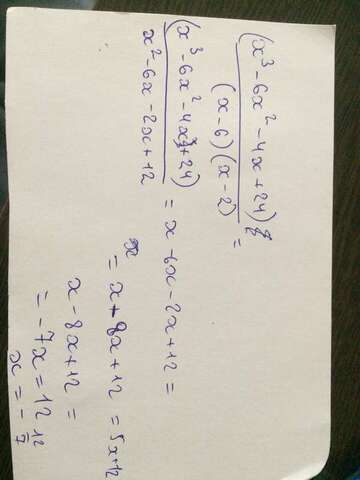 (x³ - 6x² - 4x + 24)
(x - 6)(x - 2) =
(x³ - 6x² - 4x + 24)
x² - 6x - 2x + 12 = x - 6x - 2x + 12 =
= x + 8x + 12 = 5x + 12
x - 8x + 12 =
= -7x = 12
x = - 12/7